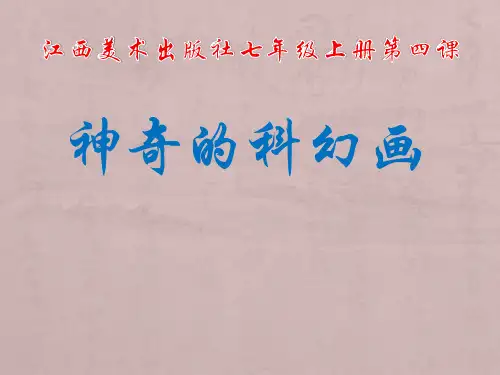 江西美术出版社七年级上册第四课
神奇的科幻画